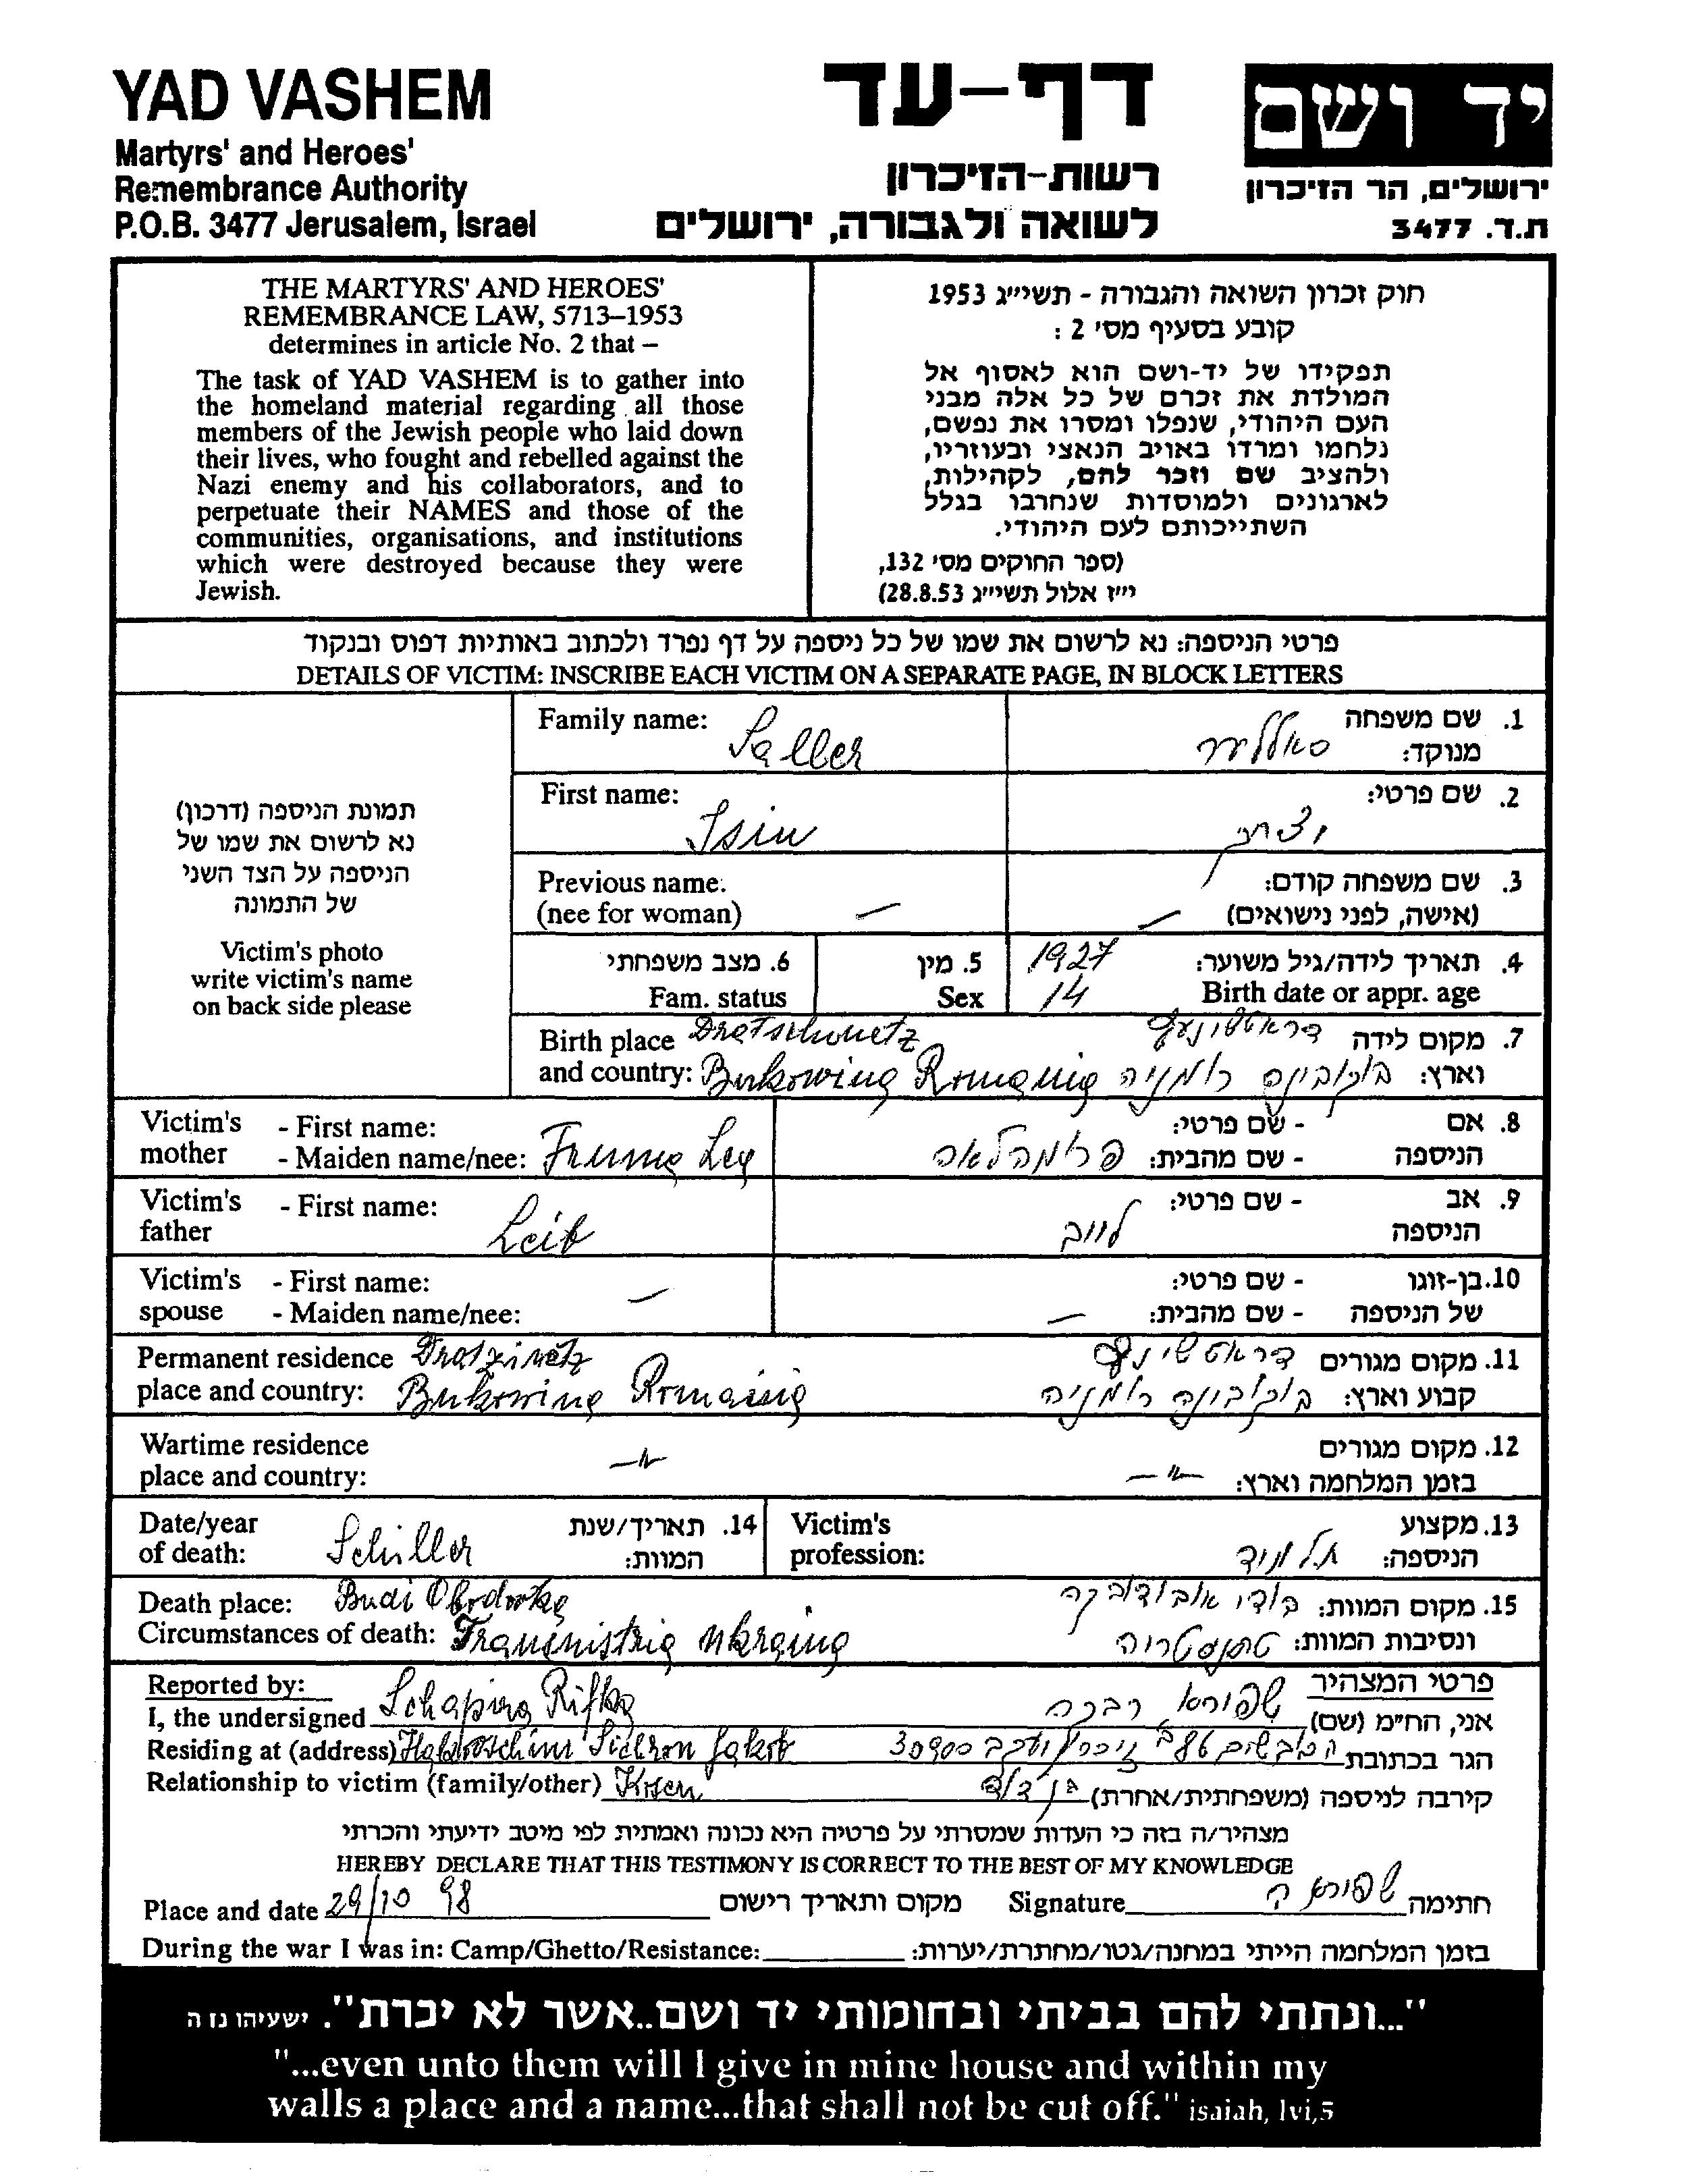 YAD VASHEM
Martyrs' and Heroes'
Remembrance Authority
P.O.B. 3477 Jerusalem, Israel
דף-עד
רשות-הזיכרון
לשואה ולגבורה, ירושלים
יד ושם
ירושלים, הר הזיכרון
ת.ד. 3477
THE MARTYRS' AND HEROES'
REMEMBRANCE LAW, 5713–1953
determines in article No. 2 that –
The task of YAD VASHEM is to gather into
the homeland material regarding all those
members of the Jewish people who laid down
their lives, who fought and rebelled against the
Nazi enemy and his collaborators, and to
perpetuate their NAMES and those of the
communities, organisations, and institutions
which were destroyed because they were
Jewish.
חוק זכרון השואה והגבורה - תשי״ג 1953
קובע בסעיף מס׳ 2 :
תפקידו של יד-ושם הוא לאסוף אל
המולדת את זכרם של כל אלה מבני
העם היהודי, שנפלו ומסרו את נפשם,
נלחמו ומרדו באויב הנאצי ובעוזריו,
ולהציב שם וזכר להם, לקהילות,
לארגונים ולמוסדות שנחרבו בגלל
השתייכותם לעם היהודי.
(ספר החוקים מס׳ 132,
י״ז אלול תשי״ג 28.8.53)
פרטי הניספה: נא לרשום את שמו של כל ניספה על דף נפרד ולכתוב באותיות דפוס ובנקוד
DETAILS OF VICTIM: INSCRIBE EACH VICTIM ON A SEPARATE PAGE, IN BLOCK LETTERS
תמונת הניספה (דרכון)
נא לרשום את שמו של
הניספה על הצד השני
של התמונה
Victim's photo
write victim's name
on back side please
Family name: Saller
1. שם משפחה
מנוקד: סאללער
First name: Isiu
2. שם פרטי:
Previous name:
(nee for woman) —
3. שם משפחה קודם:
(אישה, לפני נישואים) —
6. מצב משפחתי
Fam. status
5. מין
Sex
4. תאריך לידה/גיל משוער: 1927
Birth date or appr. age 14
Birth place Dratschunetz
and country: Bukowina Romania
7. מקום לידה
וארץ: בוקובינה רומניה
Victim's mother
- First name:
- Maiden name/nee: Fruma Lea
8. אם הניספה
- שם פרטי:
- שם מהבית: פרומה לאה
Victim's father
- First name: Leib
9. אב הניספה
- שם פרטי: לייב
Victim's spouse
- First name:
- Maiden name/nee: —
10. בן-זוגו של הניספה
- שם פרטי:
- שם מהבית: —
Permanent residence
place and country: Bukowina Romania
11. מקום מגורים
קבוע וארץ: בוקובינה רומניה
Wartime residence
place and country: —〃—
12. מקום מגורים
בזמן המלחמה וארץ: —〃—
Date/year
of death: Schiller
14. תאריך/שנת
המוות:
Victim's
profession:
13. מקצוע
הניספה: תלמיד
Death place: Budi Obodowka
Circumstances of death: Transnistria Ukraina
15. מקום המוות: בודי אובודובקה
ונסיבות המוות: טרנסניסטריה
Reported by:
פרטי המצהיר
I, the undersigned Schapira Rifka
אני, הח״מ (שם) שפירא רבקה
Residing at (address)
הגר בכתובת זיכרון יעקב 30900
Relationship to victim (family/other)
קירבה לניספה (משפחתית/אחרת) בן דוד
מצהיר/ה בזה כי העדות שמסרתי על פרטיה היא נכונה ואמתית לפי מיטב ידיעתי והכרתי
HEREBY DECLARE THAT THIS TESTIMONY IS CORRECT TO THE BEST OF MY KNOWLEDGE
Place and date 29/10 98 מקום ותאריך רישום
Signature שפירא ר חתימה
During the war I was in: Camp/Ghetto/Resistance:
בזמן המלחמה הייתי במחנה/גטו/מחתרת/יערות:
"...ונתתי להם בביתי ובחומותי יד ושם..אשר לא יכרת". ישעיהו נז ה
"...even unto them will I give in mine house and within my
walls a place and a name...that shall not be cut off." isaiah, lvi,5